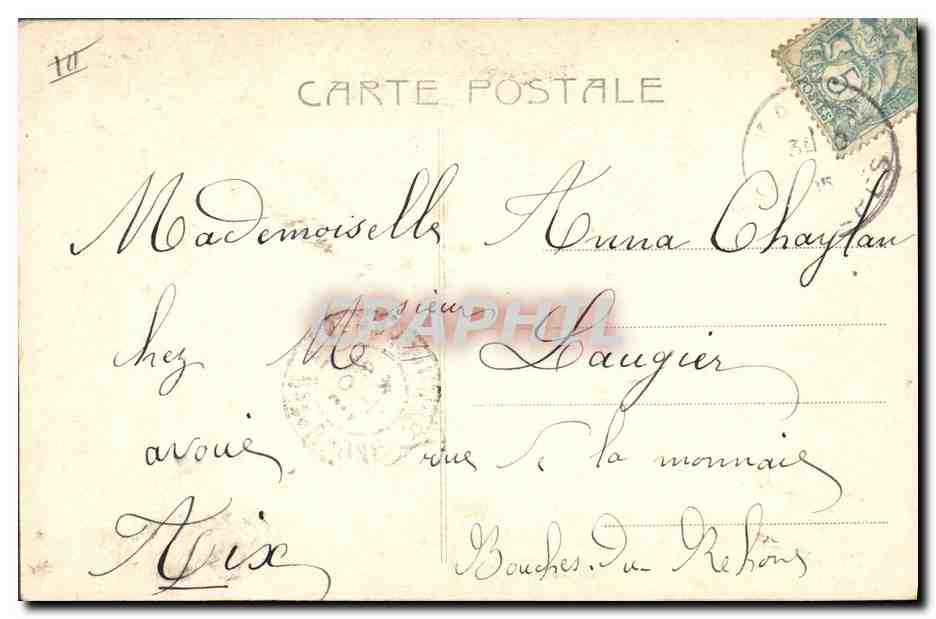 10
CARTE POSTALE
5
POSTES
Mademoiselle Anna Chaylan
chez Monsieur Laugier
avoué rue de la monnaie
Aix Bouches-du-Rehône
CPAPHIL